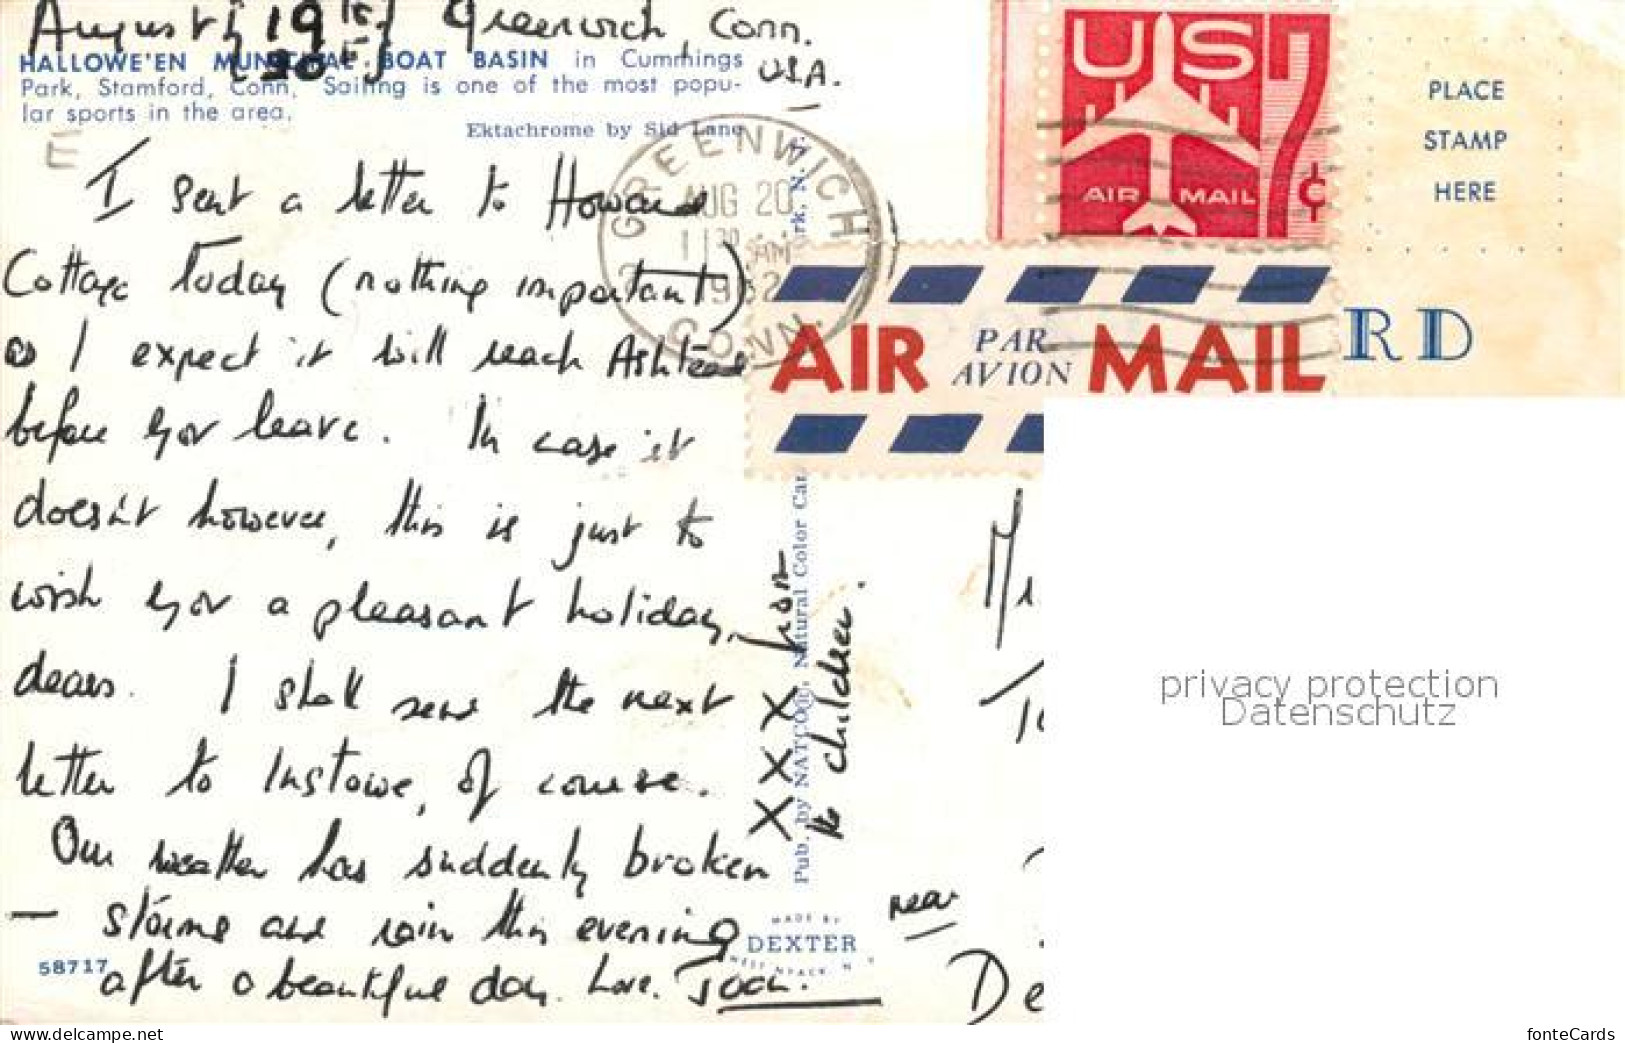 August 19th Greenwich, Conn.
U.S.A.
HALLOWE'EN MUNICIPAL BOAT BASIN in Cummings
Park, Stamford, Conn. Sailing is one of the most popu-
lar sports in the area.
Ektachrome by Sid Lane
I sent a letter to Howard
Cottage today (nothing important)
as I expect it will reach Ashtead
before you leave. In case it
doesn't however, this is just to
wish you a pleasant holiday,
dears. I shall send the next
letter to Instowe, of course.
Our weather has suddenly broken
— storms and rain this evening
after a beautiful day. Love.
XXX from
the children.
58717
GREENWICH
AUG 20
11 30 AM
1962
CONN.
Pub. by NATCO, Natural Color Car
MADE BY
DEXTER
WEST NYACK, N. Y.
US
AIR MAIL
7¢
PLACE
STAMP
HERE
RD
AIR PAR AVION MAIL
near
De
privacy protection
Datenschutz
www.delcampe.net
fonteCards